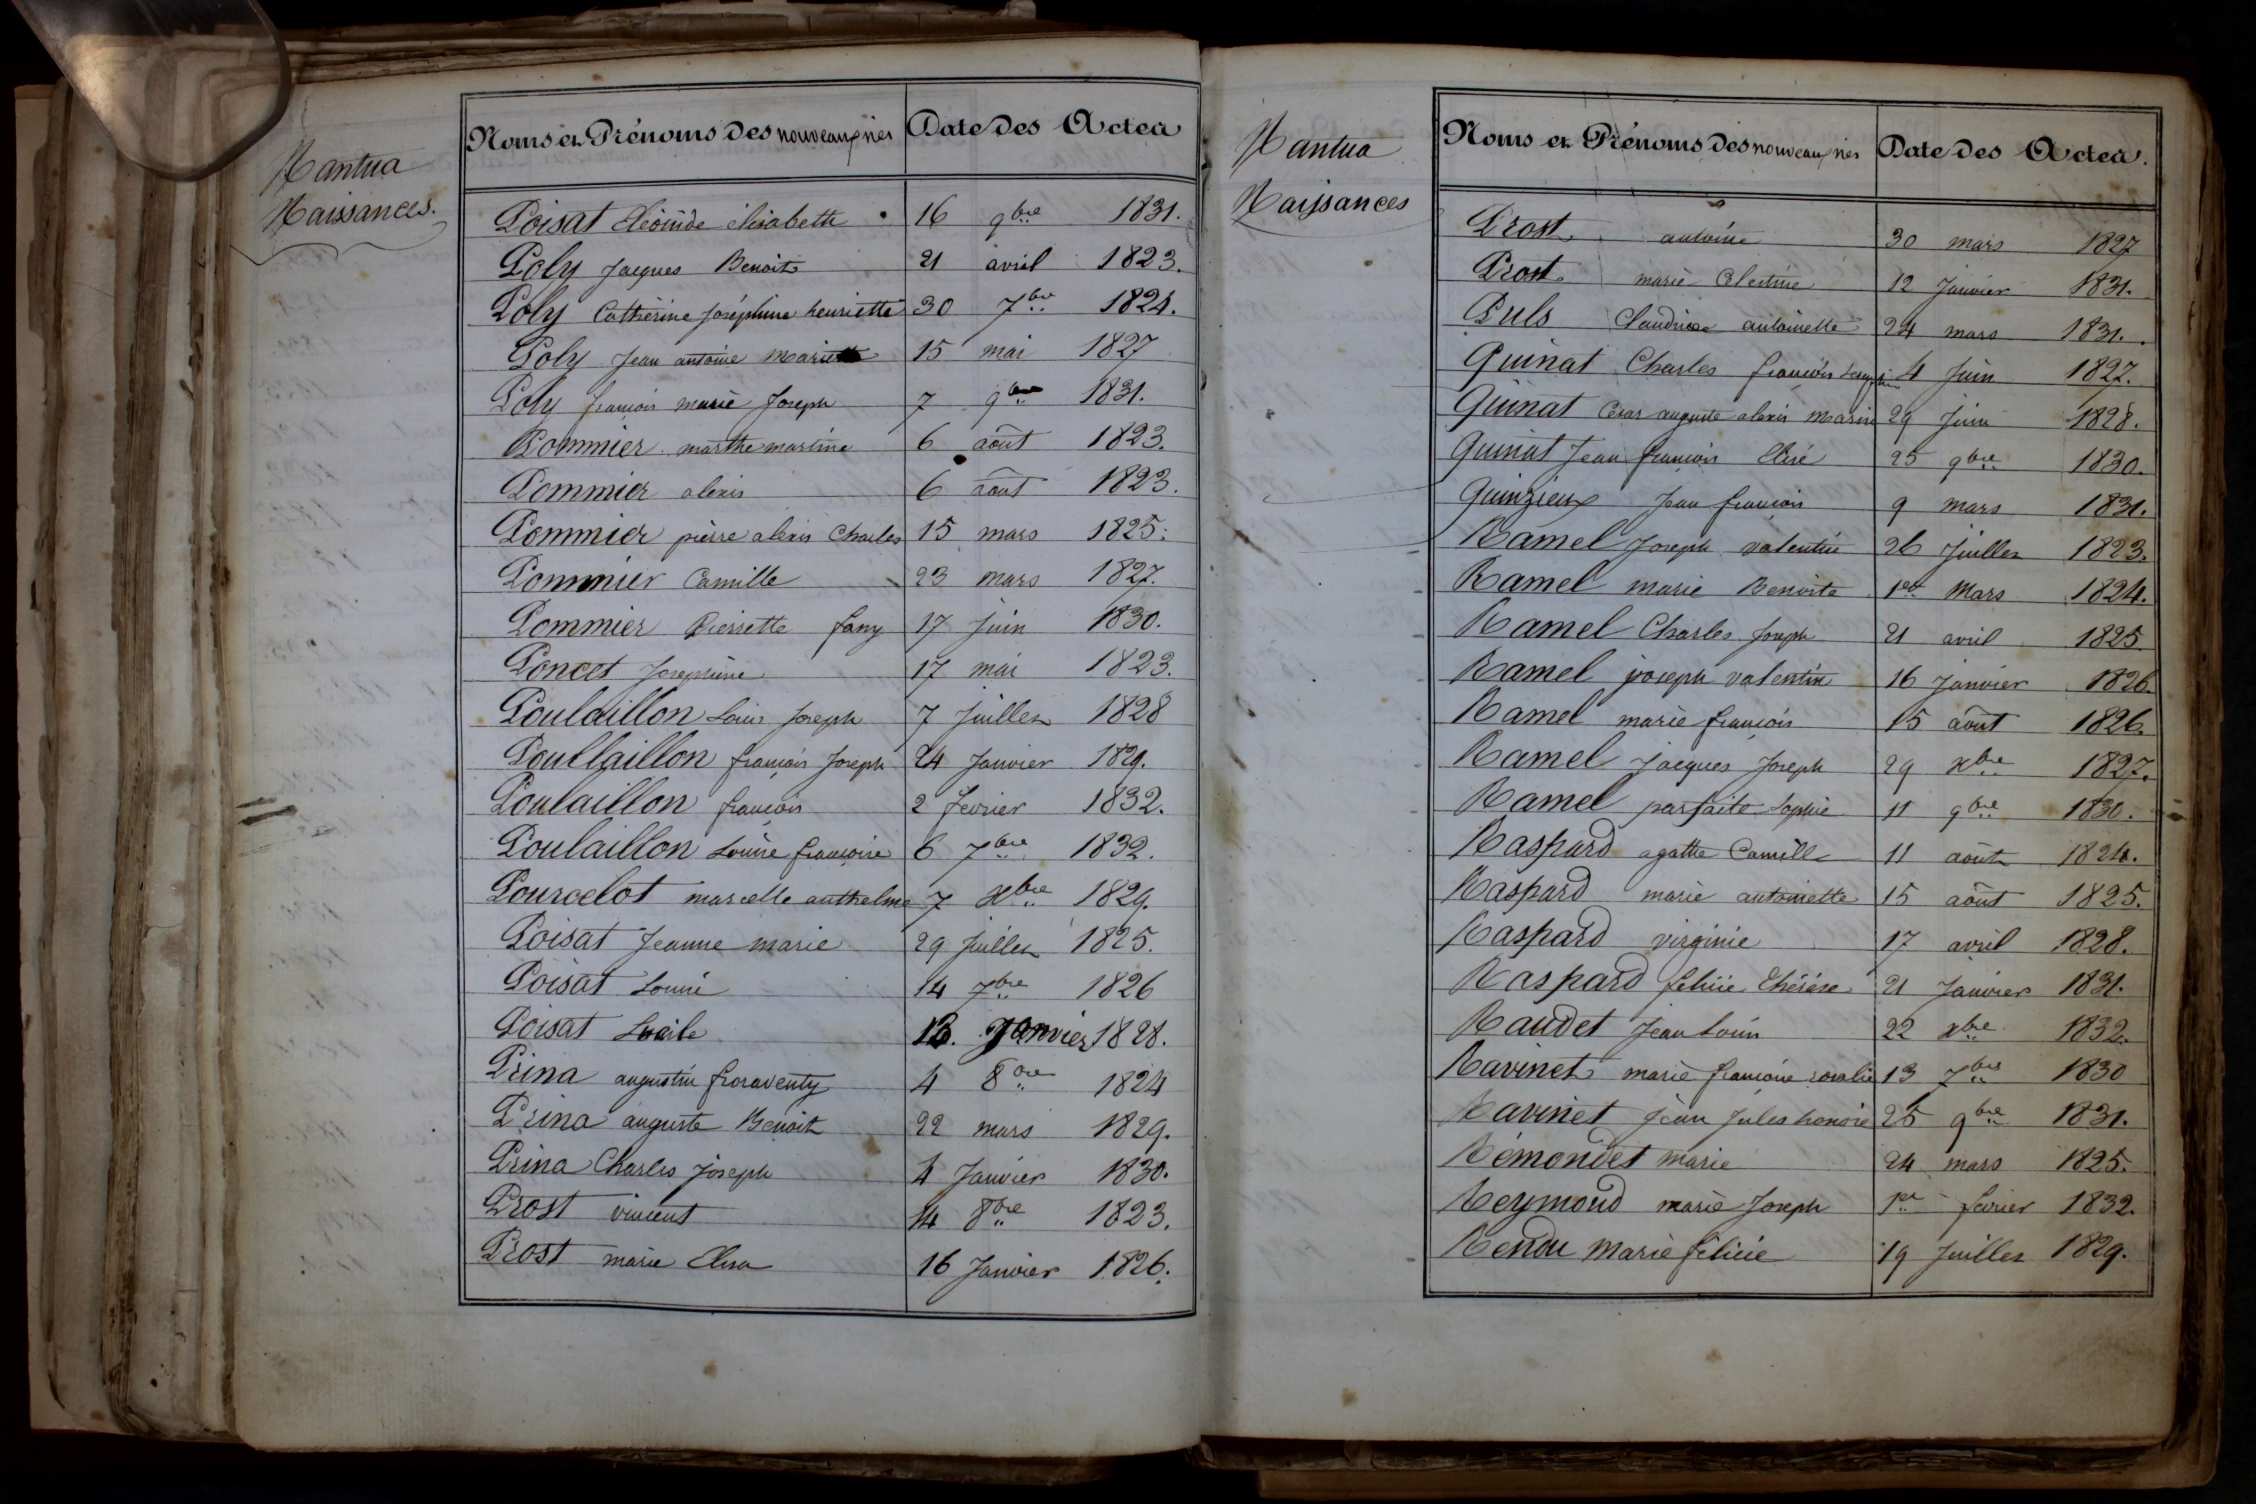 Nantua
Naissances.
Noms et Prénoms des nouveaux nés Date des Actes
Poisat Cléonide élisabeth 16 9bre 1831.
Poly Jacques Benoit 21 avril 1823.
Poly Catherine Joséphine henriette 30 7bre 1824.
Poly Jean antoine Mariette 15 mai 1827
Poly françois marie Joseph 7 9bre 1831.
Pommier marthe martine 6 août 1823.
Pommier alexis 6 août 1823.
Pommier pierre alexis Charles 15 mars 1825.
Pommier Camille 23 mars 1827.
Pommier Pierrette fany 17 juin 1830.
Poncet Josephine 17 mai 1823.
Poulaillon Louis Joseph 7 Juillet 1828
Poullaillon françois Joseph 24 Janvier 1829.
Poulaillon françois 2 février 1832.
Poulaillon Louise françoise 6 7bre 1832.
Pourcelot marcelle anthelme 7 Xbre 1829.
Poisat Jeanne marie 29 Juillet 1825.
Poisat Louise 14 7bre 1826
Poisat Lucile Janvier 1828.
Prina augustin 4 8bre 1824
Prina auguste Benoit 22 mars 1829.
Prina Charles joseph 4 Janvier 1830.
Prost vincent 14 8bre 1823.
Prost marie Elisa 16 Janvier 1826.
Nantua
Naissances
Noms et Prénoms des nouveaux nés Date des Actes.
Prost antoine 30 mars 1827
Prost marie Célestine 12 Janvier 1831.
Puls Claudine antoinette 24 mars 1831.
Quinat Charles françois Joseph 4 Juin 1827.
Quinat César auguste alexis Marin 29 Juin 1828.
Quinat Jean françois Elisé 25 9bre 1830.
Quinzieux Jean françois 9 mars 1831.
Ramel Joseph valentin 26 Juillet 1823.
Ramel marie Benoite 1er Mars 1824.
Ramel Charles Joseph 21 avril 1825
Ramel joseph valentin 16 Janvier 1826.
Ramel marie françois 15 août 1826.
Ramel jacques Joseph 29 Xbre 1827.
Ramel parfaite Sophie 11 9bre 1830.
Raspard agathe Camille 11 août 1824.
Raspard marie antoinette 15 août 1825.
Raspard virginie 17 avril 1828.
Raspard félicie thérése 21 Janvier 1831.
Raudet Jean Louis 22 xbre 1832.
Ravinet marie françoise rosalie 13 7bre 1830
Ravinet Jean Jules honoré 25 9bre 1831.
Rémondet marie 24 mars 1825.
Reymond marie Joseph 1er février 1832.
Rendu Marie félicie 19 Juillet 1829.